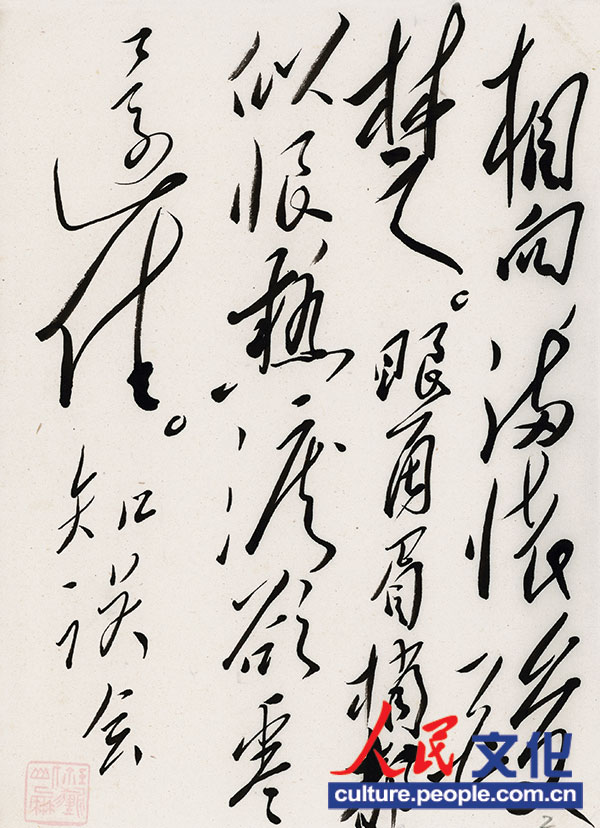 相向满怀酸
楚。眼角眉梢都
似恨热泪欲零
还住。知误会
人民文化
culture.people.com.cn
2